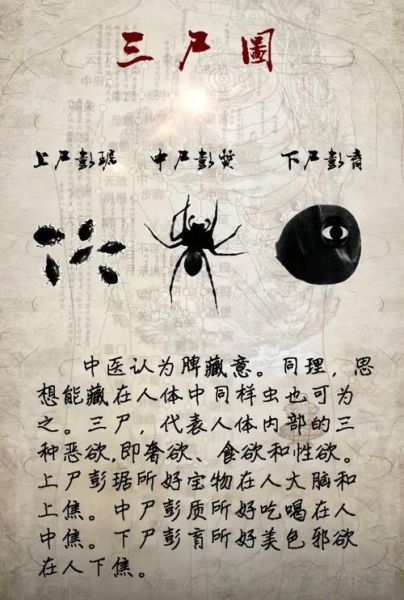 三尸圖
上尸彭琚 中尸彭質 下尸彭育
中医认为脾藏意。同理，思
想能藏在人体中同样虫也可为
之。三尸，代表人体内部的三
种恶欲,即奢欲、食欲和性欲。
上尸彭琚所好宝物在人大脑和
上焦。中尸彭质所好吃喝在人
中焦。下尸彭育所好美色邪欲
在人下焦。